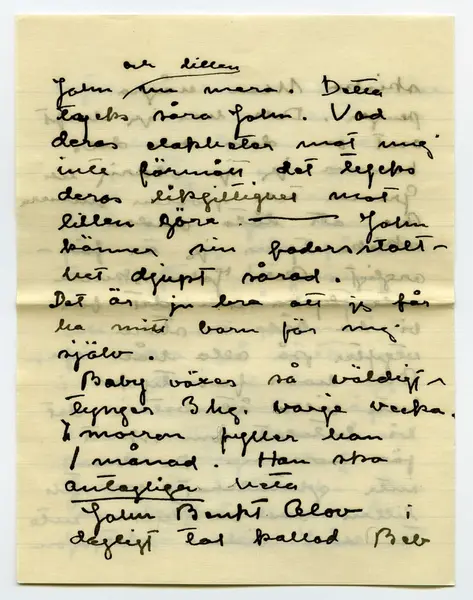 och lillen
John nu mera. Detta
tycks såra John. Vad
deras elakheter mot mig
inte förmått det tycks
deras likgiltighet mot
lillen göra. — John
känner sin fadersstolt-
het djupt sårad.
Det är ju bra att jag får
ha mitt barn för mig
själv.
Baby växer så väldigt –
tynger 3 hg. varje vecka.
I morron fyller han
1 månad. Han ska
antagligen heta
John Bengt Olov i
dagligt tal kallad Beb